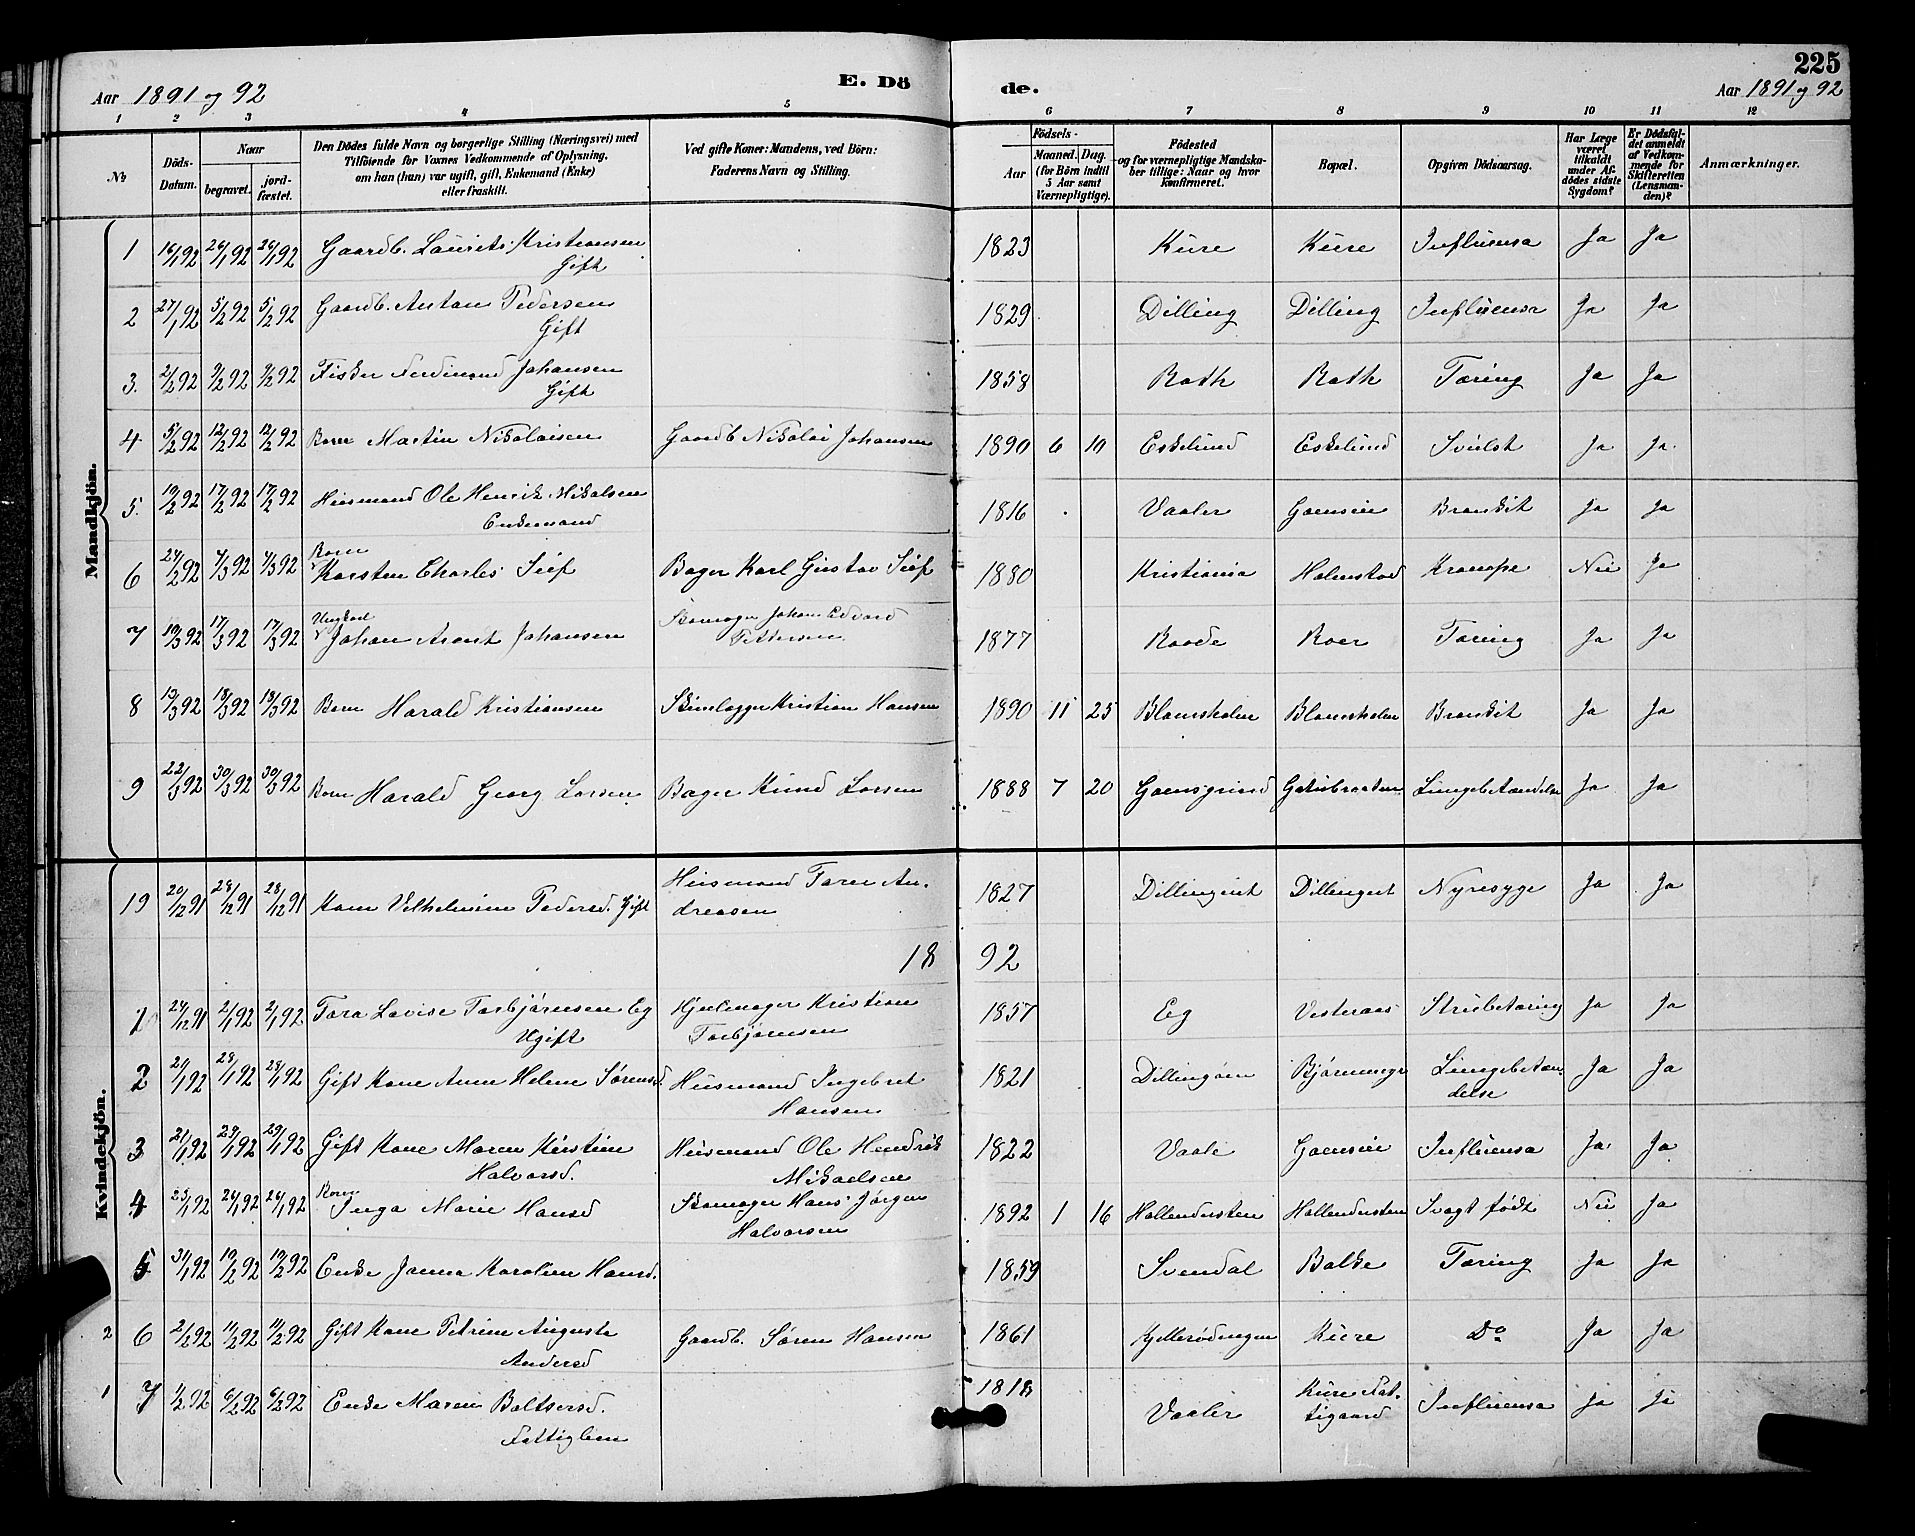 Aar 1891 og 92 E. Dö de. 225
Aar 1891 og 92
1 2 3 4 5 6 7 8 9 10 11 12
No
Döds-Datum.
Naar
begravet.
jordfæstet.
Den Dödes fulde Navn og borgerlige Stilling (Næringsvei) med
Tilföiende for Voxnes Vedkommende af Oplysning,
om han (hun) var ugift, gift, Enkemand (Enke)
eller fraskilt.
Ved gifte Koner: Mandens, ved Börn:
Faderens Navn og Stilling.
Födsels-
Aar
Maaned. Dag.
(for Börn indtil
5 Aar samt
Værnepligtige).
Födested
og for værnepligtige Mandska-
ber tillige: Naar og hvor
konfirmeret.
Bopæl.
Opgiven Dödsaarsag.
Har Læge
været
tilkaldt
under Af-
dödes sidste
Sygdom?
Er Dödsfal-
det anmeldt
af Vedkom-
mende for
Skifteretten
(Lensman-
den)?
Anmærkninger.
Mandkjön.
1 16/1 92 26/1 92 26/1 92 Gaardb. Laurits Kristiansen 1823 Kure Kure Influensa Ja Ja
Gift
2 27/1 92 5/2 92 5/2 92 Gaardb. Anton Pedersen 1829 Dilling Dilling Influensa Ja Ja
Gift
3. 2/2 92 9/2 92 9/2 92 Fisker Ferdinand Johansen 1858 Rath Rath Tæring Ja Ja
Gift
4 5/2 92 12/2 92 12/2 92 Barn Martin Nikolaisen Gaardb Nikolai Johansen 1890 6 19 Eskelund Eskelund Svulst Ja Ja
5. 10/2 92 17/2 92 17/2 92 Husmand Ole Henrik Mikalsen 1816 Vaaler Gaensien Bronkit Ja Ja
Enkemand
Barn
6 24/2 92 4/3 92 4/3 92 Karsten Charles Bager Karl Gustav 1880 Kristiania Halmstad Krampe Nei Ja
Ungkarl Skomager Johan Edvard
7 10/3 92 17/3 92 17/3 92 Johan Arent Johansen Pettersen 1877 Raade Roer Tæring Ja Ja
8 13/3 92 18/3 92 18/3 92 Barn Harald Kristiansen Kristian Hansen 1890 11 25 Blomsholm Blomsholm Bronkit Ja Ja
9 22/3 92 30/3 92 30/3 92 Barn Harald Georg Larsen Bager Knud Larsen 1888 7 20 Lungebetændelse Ja Ja
Kvindekjön.
Husmand Toren An-
19 20/12 91 28/12 91 28/12 91 Kone Vilhelmine Pedersd. Gift dreasen 1827 Dillingeet Dillingeet Nyresyge Ja Ja
18 92
1 24/12 91 2/1 92 2/1 92 Tora Lovise Torbjørnsen Eg Hjulmager Kristian 1857 Eg Vesteraas Strubetæring Ja Ja
Ugift Torbjørnsen
2 21/1 92 28/1 92 28/1 92 Gift Kone Anne Helene Sørensd. Husmand Ingebret 1821 Dillingøen Lungebetæn- Ja Ja
Hansen delse
3 21/1 92 29/1 92 29/1 92 Gift Kone Maren Kirstine Husmand Ole Hendrik 1822 Vaale Gaensien Influensa Ja Ja
Halvorsd. Mikaelsen
Barn
4 23/1 92 26/1 92 26/1 92 Inga Marie Hansd Skomager Hans Jørgen 1892 1 16 Hallendersten Hallendersten Svagt født Nei Ja
Halvorsen
5 31/1 92 10/2 92 10/2 92 Enke Janna Karoline Hansd. 1859 Svendal Bakke Tæring Ja Ja
2 6 2/2 92 11/2 92 11/2 92 Gift Kone Petrine Auguste Gaardb. Søren Hansen 1861 Kjellerødengen Kure Do Ja Ja
Andersd
1 7 1/2 92 6/2 92 6/2 92 Enke Maren Baltsersd. 1818 Vaaler Kure Fat- Influensa Ja Ja
Fattiglem tigaard